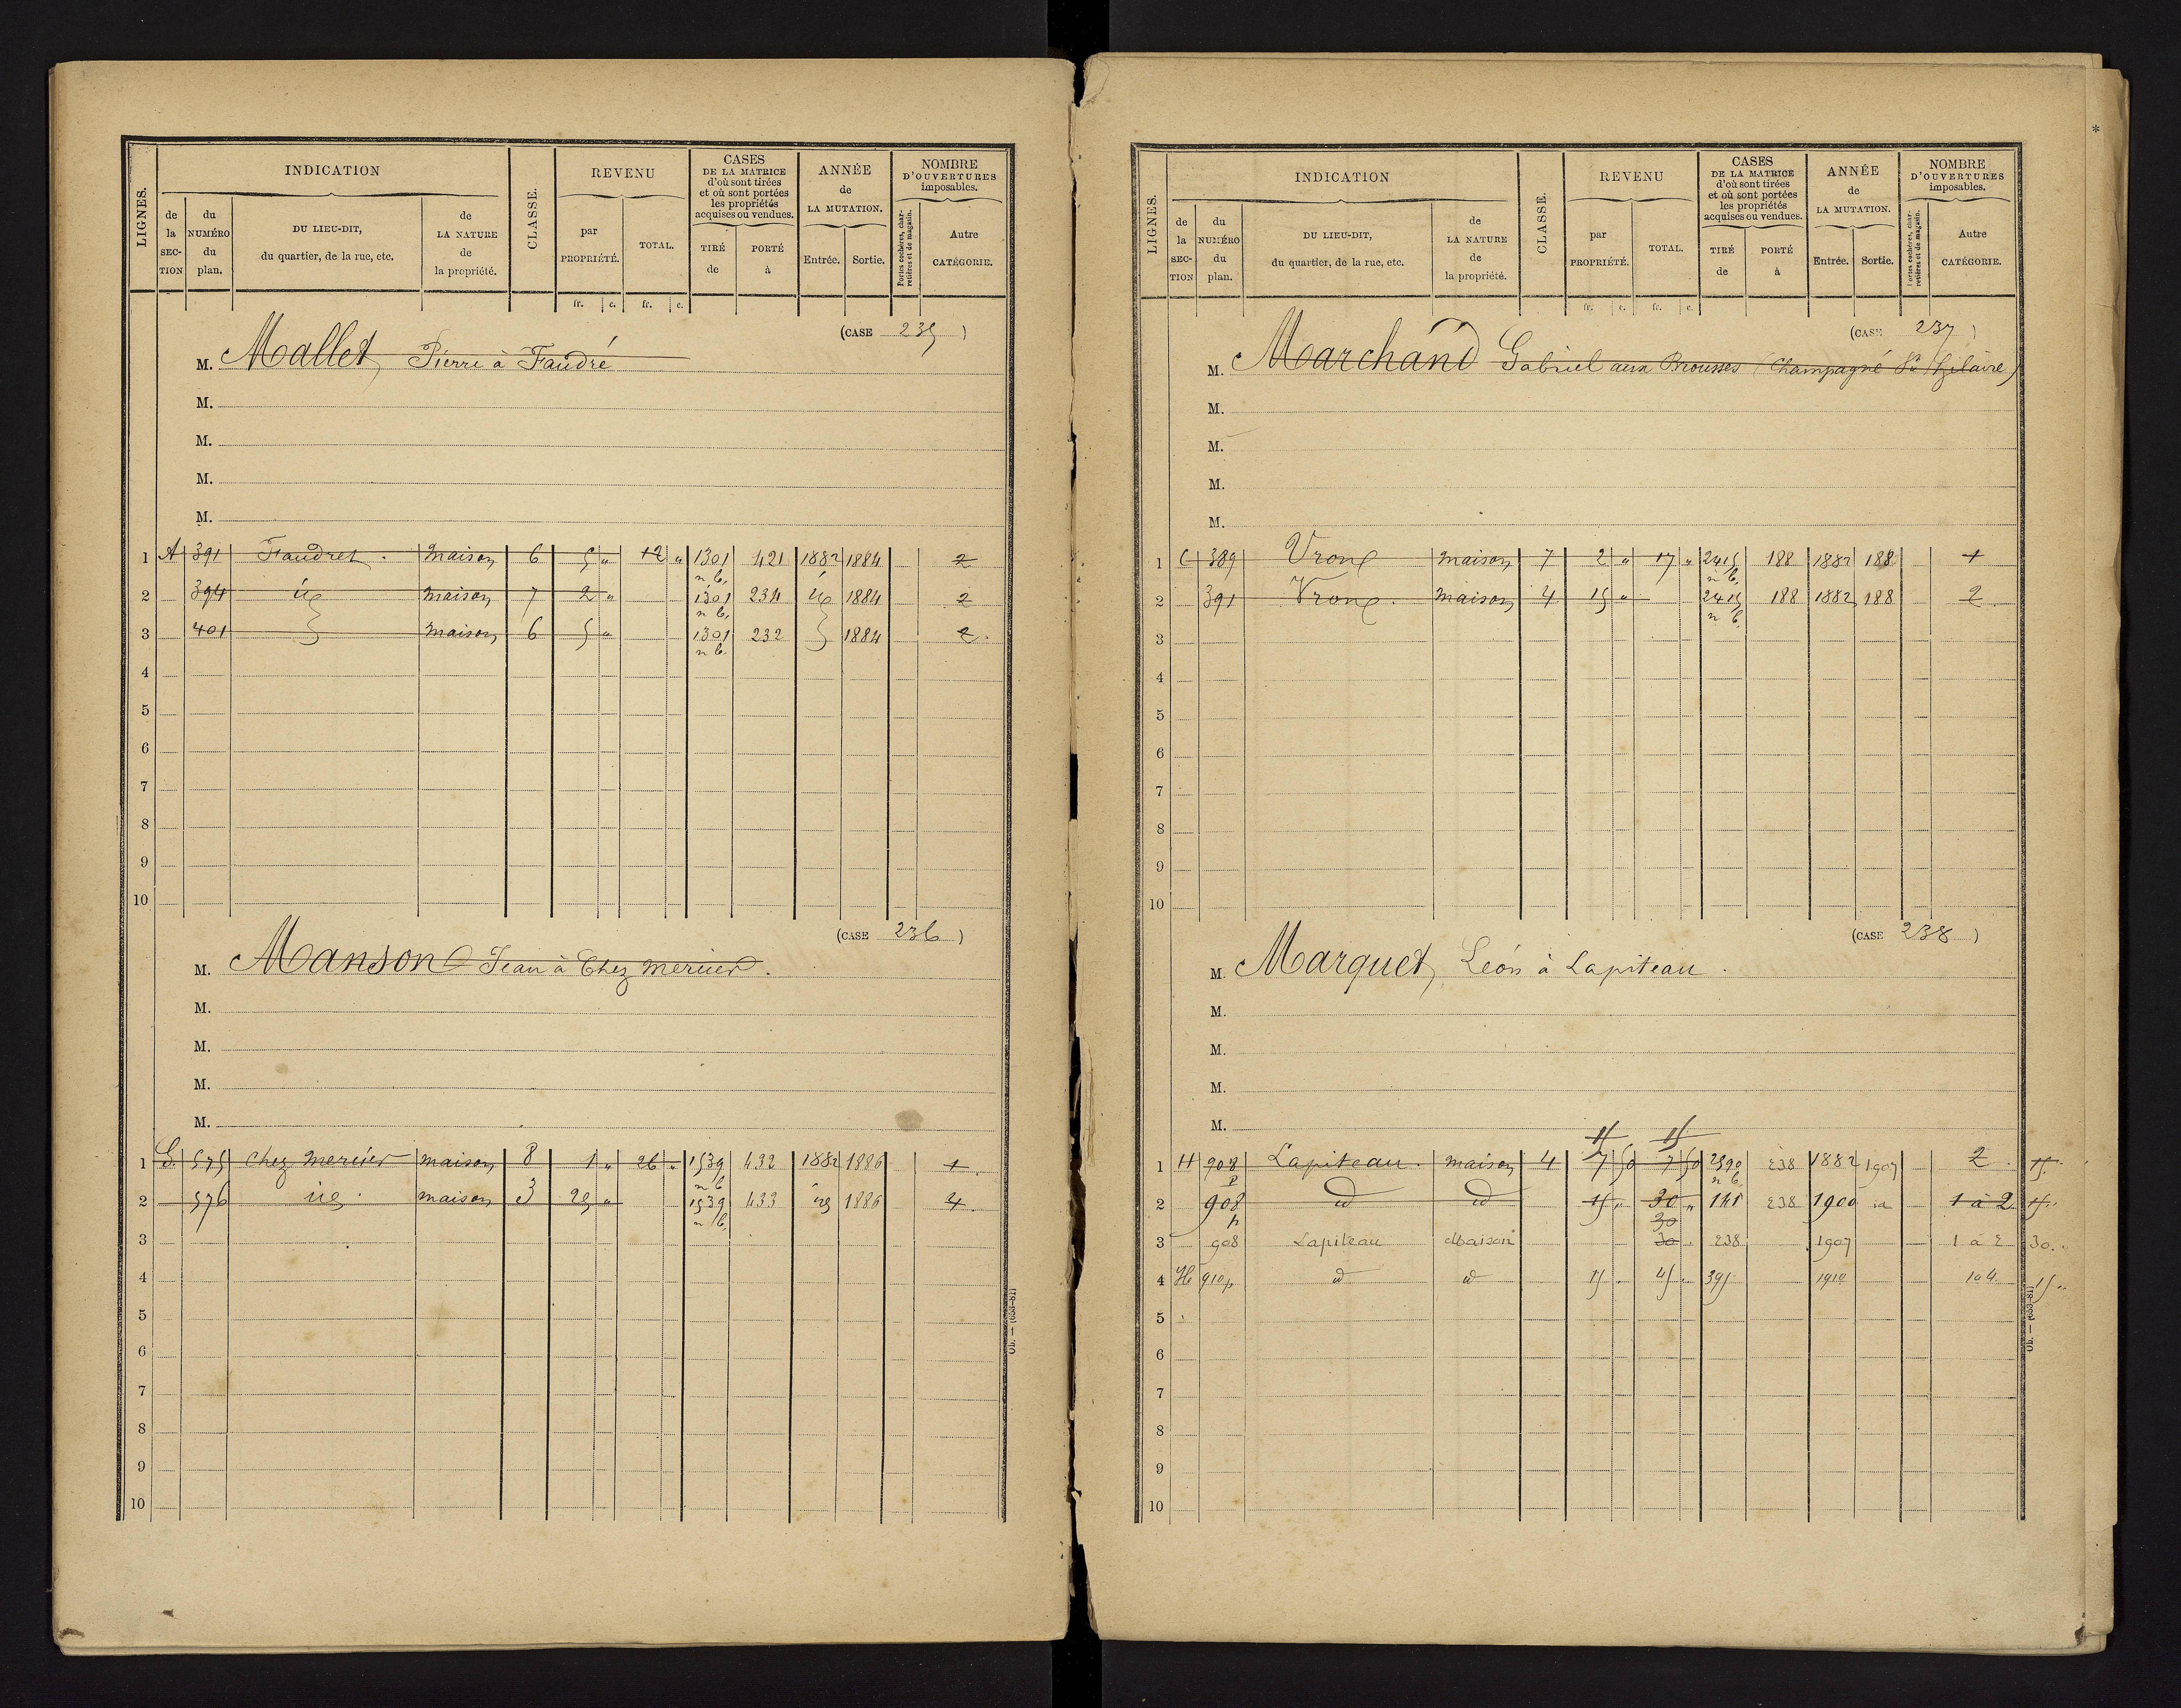 LIGNES.
INDICATION
de la SECTION
du NUMÉRO du plan.
DU LIEU-DIT, du quartier, de la rue, etc.
de LA NATURE de la propriété.
CLASSE.
REVENU
par PROPRIÉTÉ.
TOTAL.
CASES DE LA MATRICE d'où sont tirées et où sont portées les propriétés acquises ou vendues.
TIRÉ de
PORTÉ à
ANNÉE de LA MUTATION.
Entrée.
Sortie.
NOMBRE D'OUVERTURES imposables.
Portes cochères, charretières et de magasin.
Autre CATÉGORIE.
fr. c. fr. c.
(CASE 235)
M. Mallet, Pierre à Faudré
M.
M.
M.
M.
1 A 391 Faudret. maison 6 5 " 12 " 1301 n b. 421 1882 1884 2
2 394 id maison 7 2 " 1301 n b. 234 id 1884 2
3 401 maison 6 5 " 1301 n b. 232 1884 2.
4
5
6
7
8
9
10
(CASE 236)
M. Manson Jean à Chez Mercier.
M.
M.
M.
M.
1 G. 575 Chez Mercier maison 8 1 " 26 " 1539 n b 432 1882 1886 1.
2 576 id. maison 3 25 " 1539 n b. 433 id 1886 4.
3
4
5
6
7
8
9
10
Ob. — (653-81)
LIGNES.
INDICATION
de la SECTION
du NUMÉRO du plan.
DU LIEU-DIT, du quartier, de la rue, etc.
de LA NATURE de la propriété.
CLASSE.
REVENU
par PROPRIÉTÉ.
TOTAL.
CASES DE LA MATRICE d'où sont tirées et où sont portées les propriétés acquises ou vendues.
TIRÉ de
PORTÉ à
ANNÉE de LA MUTATION.
Entrée.
Sortie.
NOMBRE D'OUVERTURES imposables.
Portes cochères, charretières et de magasin.
Autre CATÉGORIE.
fr. c. fr. c.
(CASE 237)
M. Marchand Gabriel aux Brousses (Champagné St Hilaire)
M.
M.
M.
M.
1 C 389 Vrone maison 7 2 " 17 " 2415 n b. 188 1882 188 1
2 391 Vrone. maison 4 15 " 2415 n b. 188 1882 188 2.
3
4
5
6
7
8
9
10
(CASE 238)
M. Marquet, Léon à Lapiteau.
M.
M.
M.
M.
15 15
1 H 908 p Lapiteau. maison 4 7 50 7 50 2390 n b. 238 1882 1907 2. 15.
2 908 p id id 15 " 30 " 141 238 1900 id 1 à 2 15.
30
3 908 Lapiteau Maison 30 . 238 1907 1 à 2 30.
4 H 910p id id 15 . 45 . 395 1910 1 à 4 15 "
5
6
7
8
9
10
Ob. — (653-81)